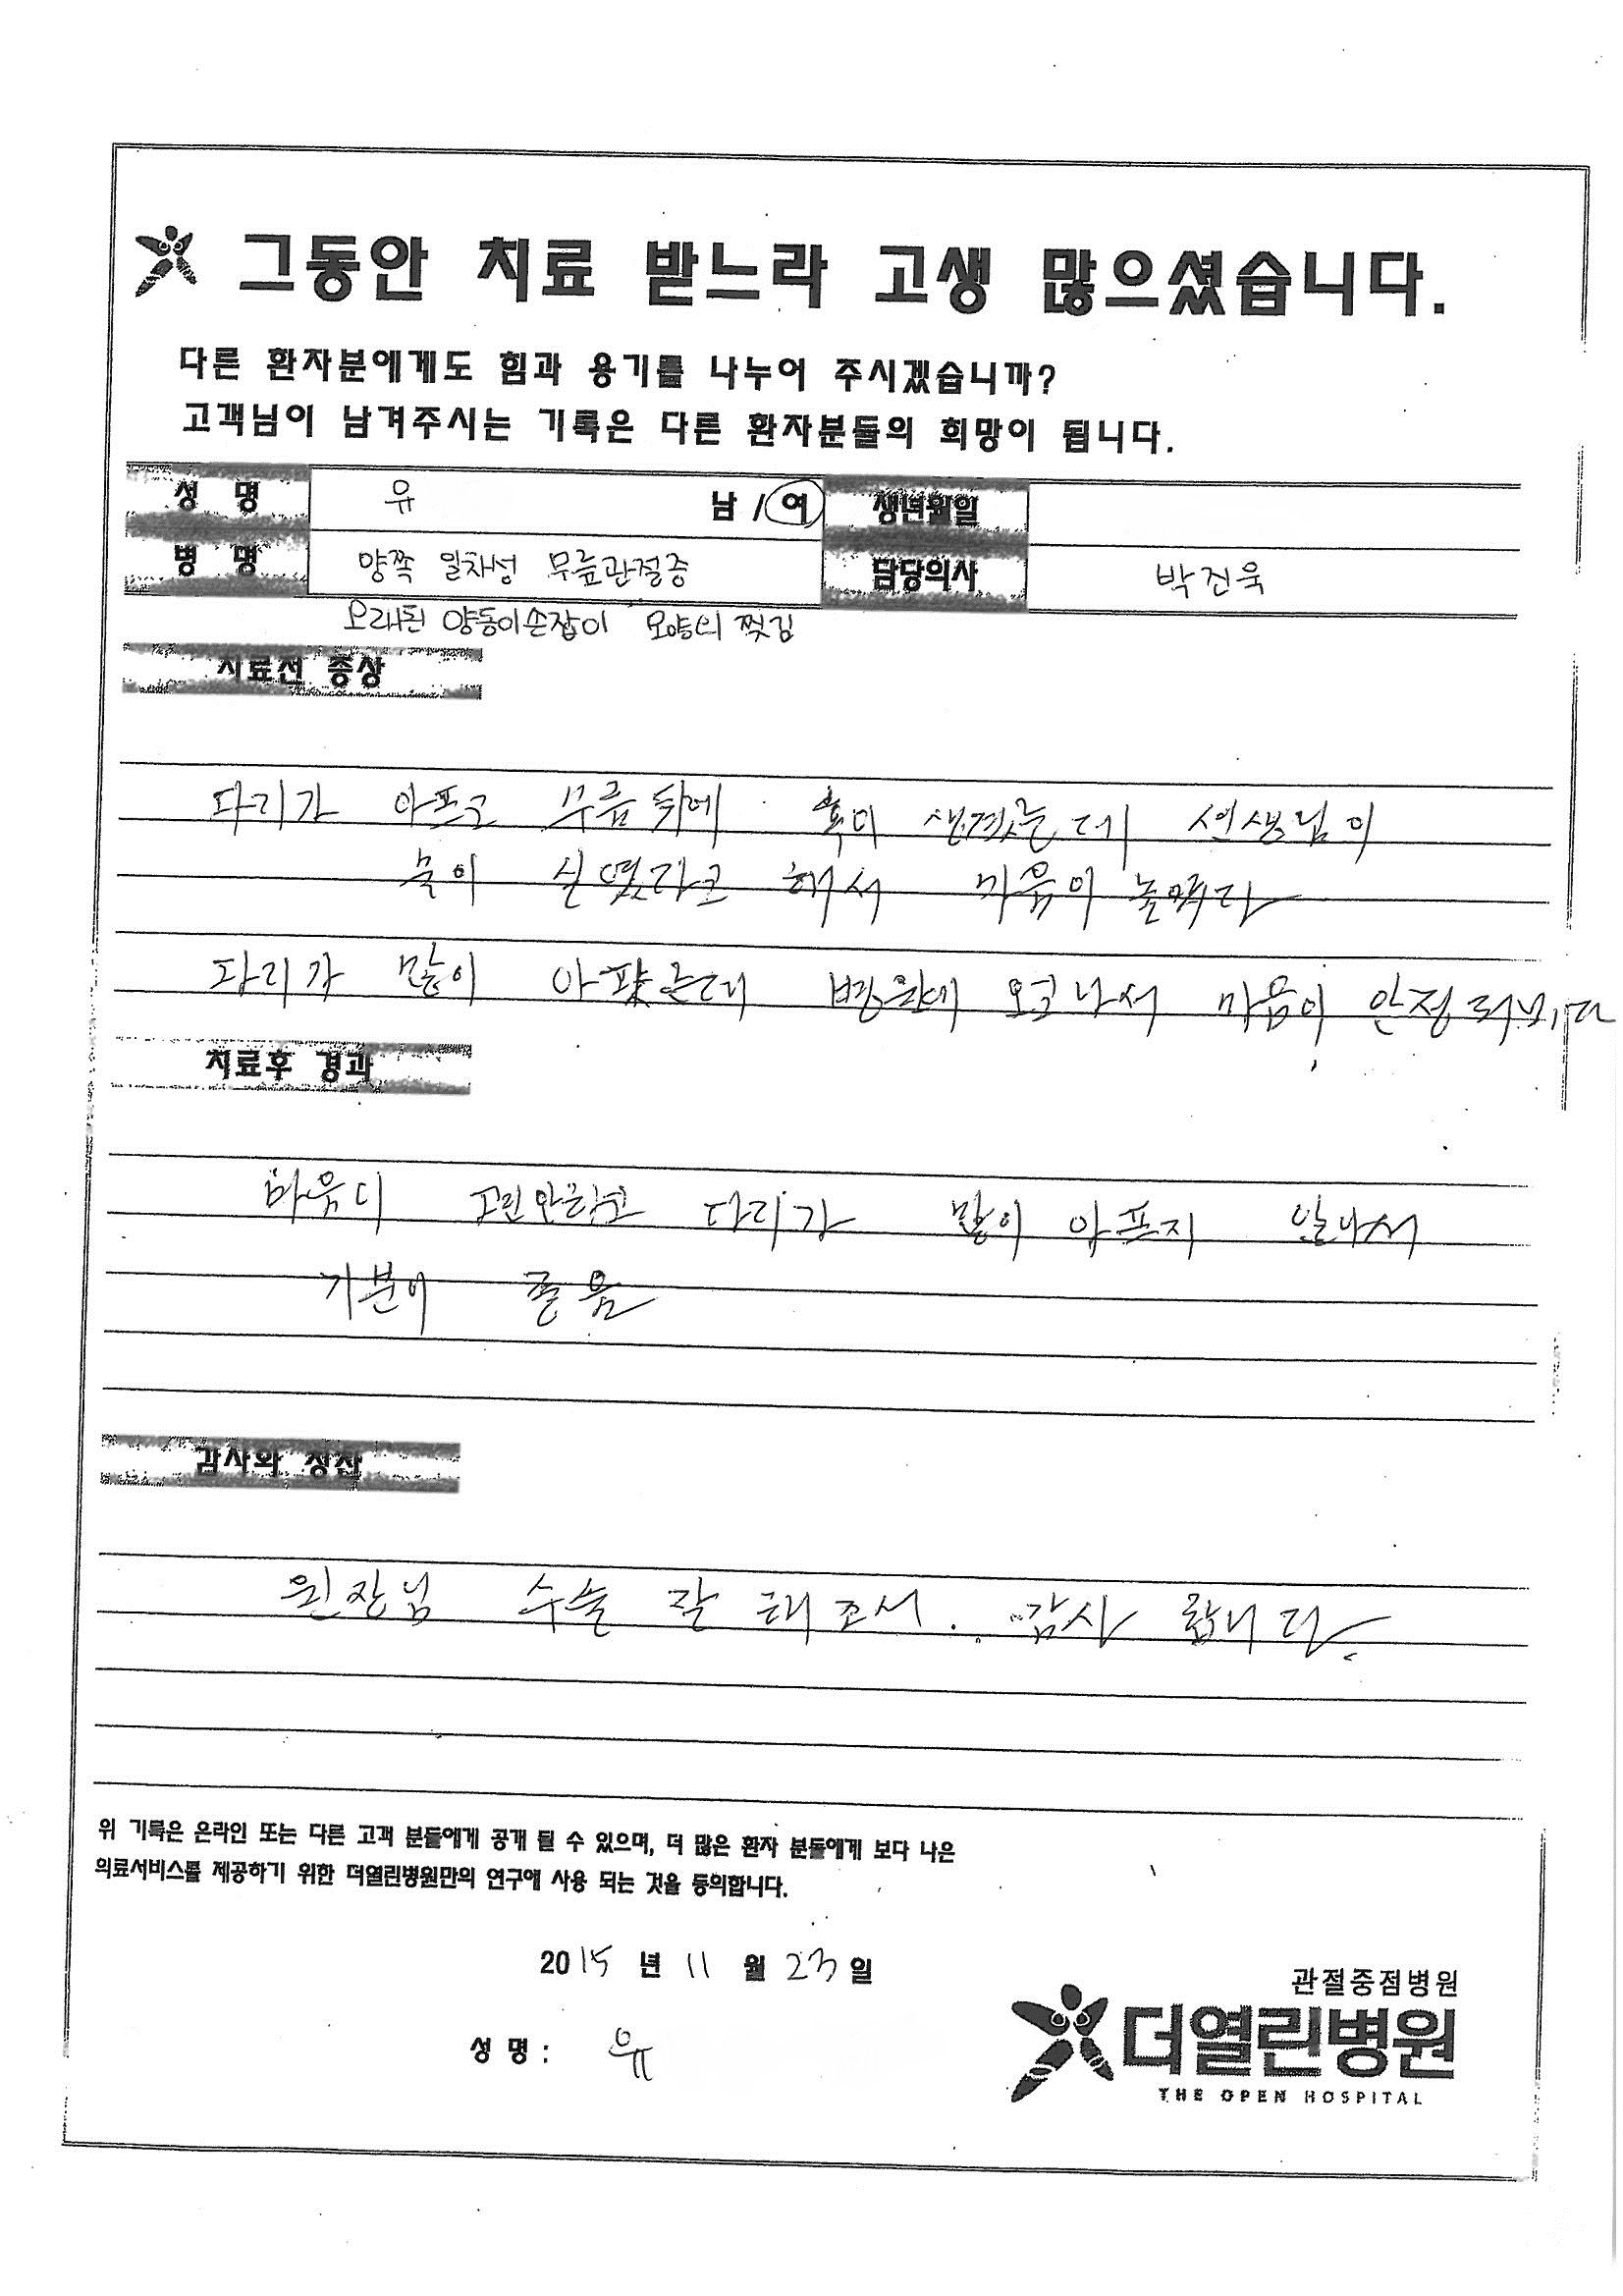 그동안 치료 받느라 고생 많으셨습니다.
다른 환자분에게도 힘과 용기를 나누어 주시겠습니까?
고객님이 남겨주시는 기록은 다른 환자분들의 희망이 됩니다.
성 명 유 남 / 여 생년월일
병 명 양쪽 일차성 무릎관절증 담당의사 박진욱
오래된 양동이손잡이 모양의 찢김
치료전 증상
다리가 아프고 무릎뒤에 혹이 생겼는데 선생님이
해서 마음이
다리가 많이 아팠는데 병원에 오고나서 마음이 안정
치료후 경과
다리가 많이 아프지 않나서
기분이 좋음
감사와 칭찬
원장님 수술 잘 해조서. 감사 합니다.
위 기록은 온라인 또는 다른 고객 분들에게 공개 될 수 있으며, 더 많은 환자 분들에게 보다 나은
의료서비스를 제공하기 위한 더열린병원만의 연구에 사용 되는 것을 동의합니다.
2015 년 11 월 23 일
관절중점병원
성 명 : 유
더열린병원
THE OPEN HOSPITAL